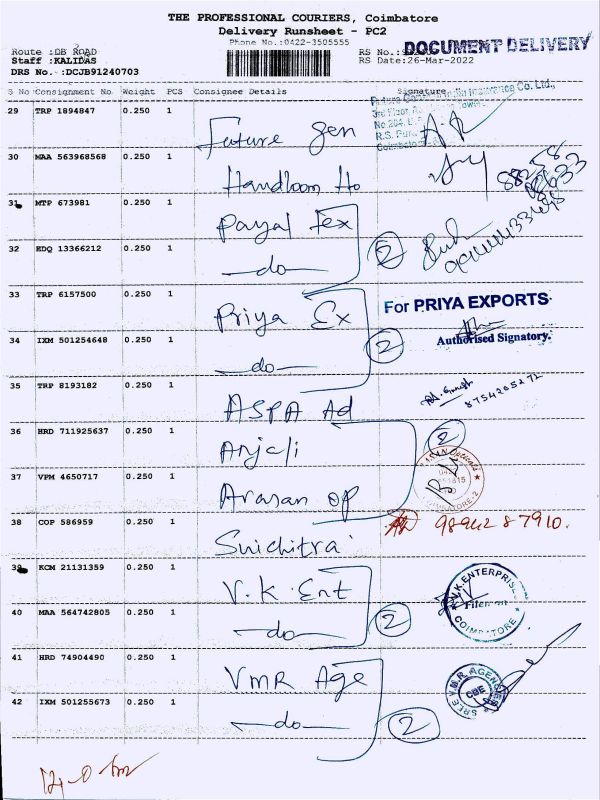 THE PROFESSIONAL COURIERS, Coimbatore
Delivery Runsheet - PC2
Phone No.:0422-3505555
DOCUMENT DELIVERY
Route :DB ROAD
Staff :KALIDAS
RS Date:26-Mar-2022
DRS No. :DCJB91240703
S No Consignment No Weight PCS Consignee Details Signature
29 TRP 1894847 0.250 1 Future gen
30 MAA 563968568 0.250 1 Handloom Ho
31 MTP 673981 0.250 1 Payal Tex
32 EDQ 13366212 0.250 1 -do- 2
33 TRP 6157500 0.250 1 Priya Ex For PRIYA EXPORTS
34 IXM 501254648 0.250 1 -do- 2 Authorised Signatory.
35 TRP 8193182 0.250 1 ASPA Ad 8754205272
36 HRD 711925637 0.250 1 Anjali 2
37 VPM 4650717 0.250 1 Arasan op
38 COP 586959 0.250 1 Suichitra 9894287910.
39 KCM 21131359 0.250 1 V.K. Ent V.K.ENTERPRISE
40 MAA 564742805 0.250 1 -do- 2 COIMBATORE
41 HRD 74904490 0.250 1 VMR Age SREE V.M.R. AGENCIES
CBE
42 IXM 501255673 0.250 1 -do- 2